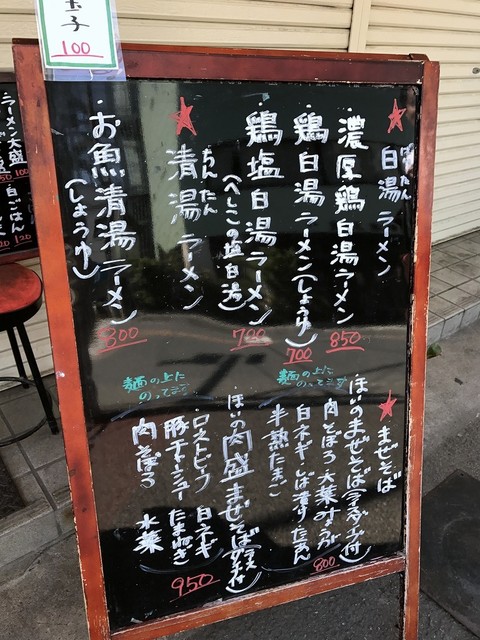 ★白湯ラーメン
ぱいたん
・濃厚鶏白湯ラーメン 850
・鶏白湯ラーメン(しょうゆ) 700
・鶏塩白湯ラーメン 700
(へしこの塩白湯)
★清湯ラーメン
ちんたん
・お魚清湯ラーメン 800
(しょうゆ)
★まぜそば
・ほいのまぜそば
肉そぼろ 大葉 みょうが
白ネギ しば漬け たくあん
半熟たまご
800
麺の上に
のってます
・ほいの肉盛まぜそば
・ローストビーフ 白ネギ
豚チャーシュー たまねぎ
肉そぼろ 水菜
950
麺の上に
のってます
玉子
100
ラーメン大盛 100
・白ごはん